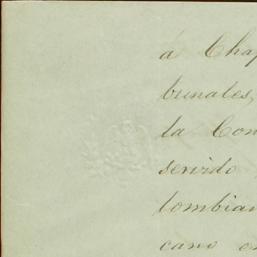 á Chap
bunales,
la Com
servido
lombian
cano on